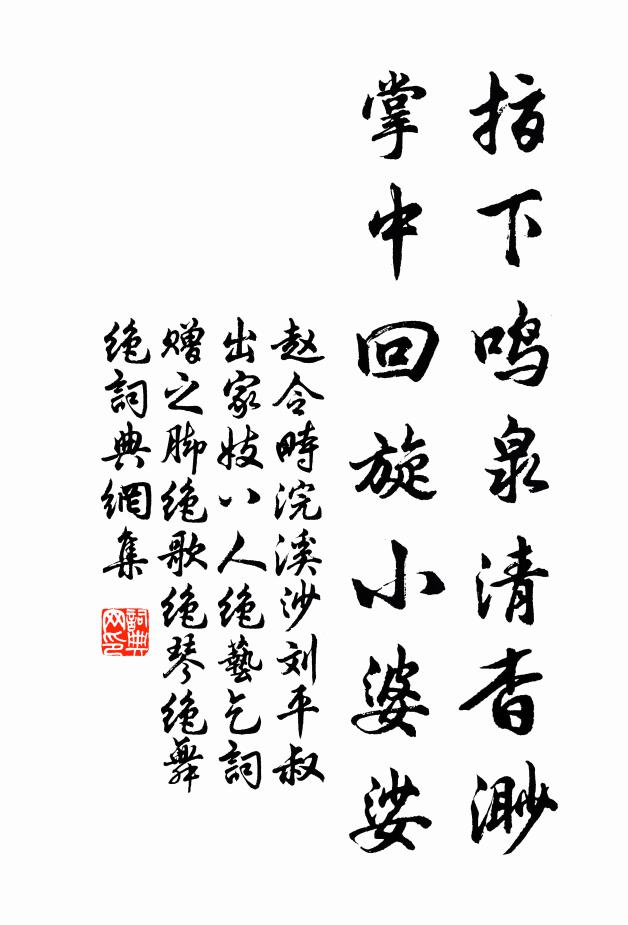 指下鸣泉清杳渺
掌中回旋小婆娑
赵令時浣溪沙刘平叔
出家妓八人绝藝乞詞
赠之脚绝歌绝琴绝舞
绝詞典網集
詞典
网印